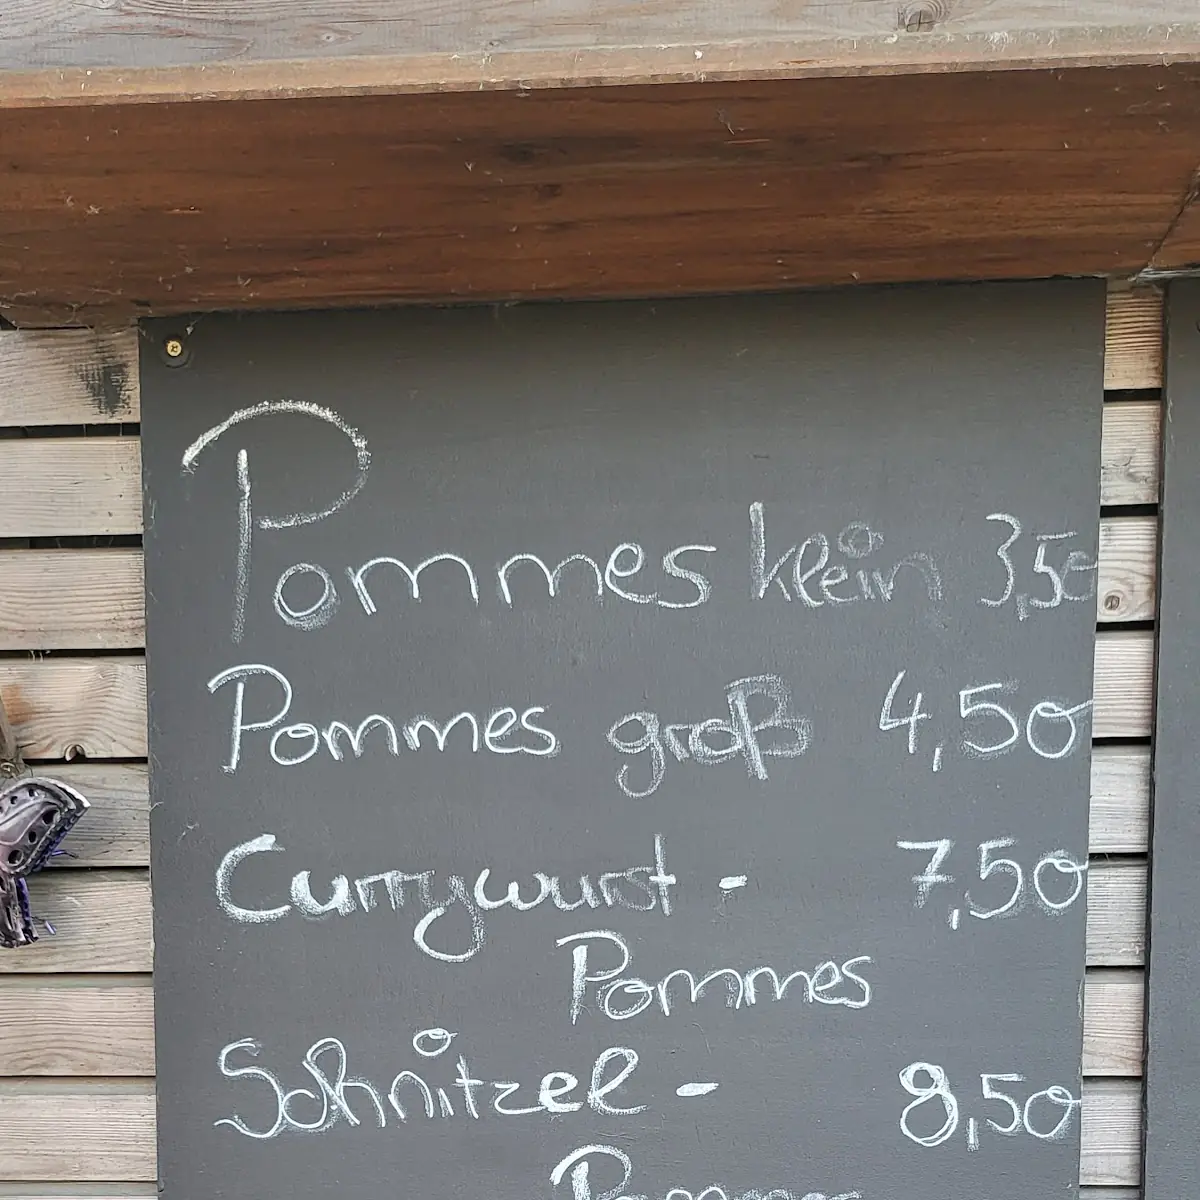 Pommes klein 3,50
Pommes groß 4,50
Currywurst - 7,50
Pommes
Schnitzel - 8,50
Pommes